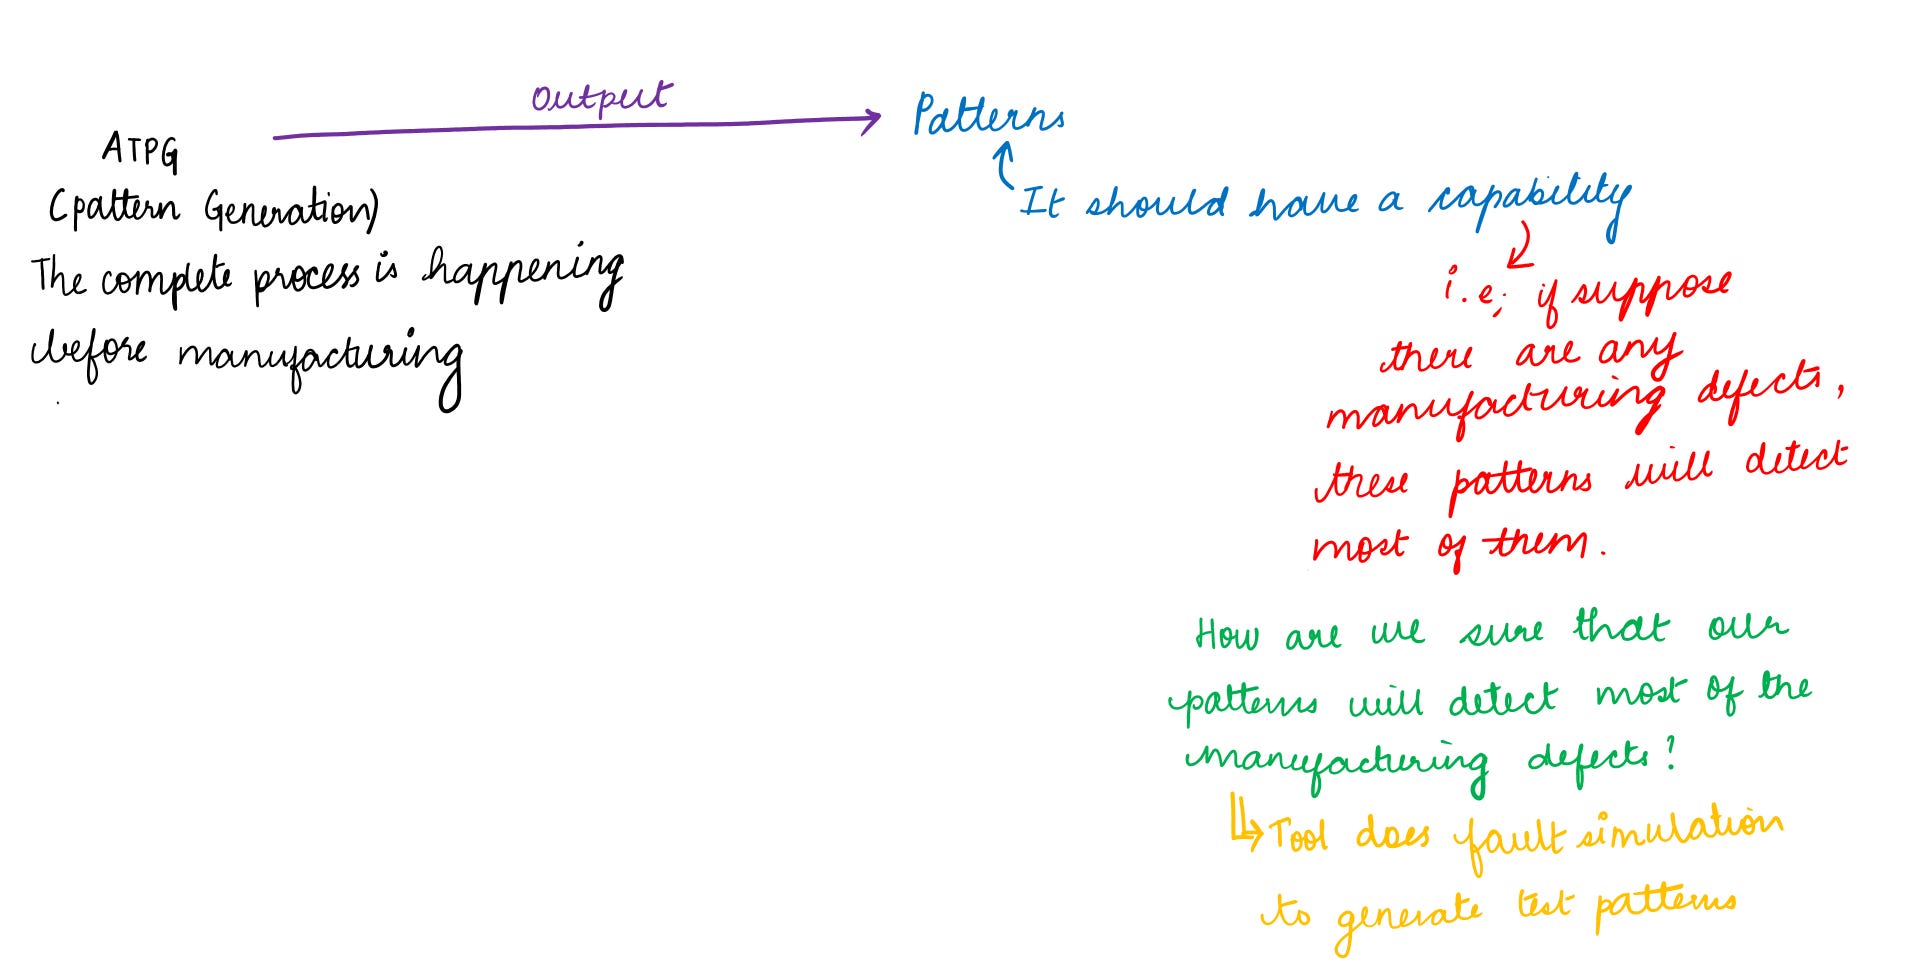 Output
ATPG
(pattern Generation)
The complete process is happening
before manufacturing
Patterns
It should have a capability
i.e; if suppose
there are any
manufacturing defects,
these patterns will detect
most of them.
How are we sure that our
patterns will detect most of the
manufacturing defects?
Tool does fault simulation
to generate test patterns